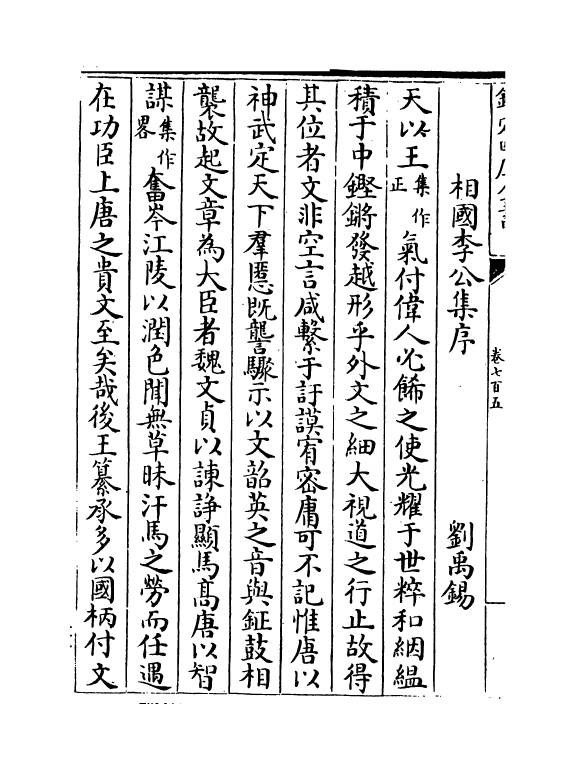 卷七百五
相國李公集序 劉禹錫
天以王集作正氣付偉人必餙之使光耀于世粹和絪縕
積于中鏗鏘發越形乎外文之細大視道之行止故得
其位者文非空言咸繫于訏謨宥密庸可不記惟唐以
神武定天下羣慝既讋驟示以文韶英之音與鉦鼓相
襲故起文章為大臣者魏文貞以諫諍顯馬髙唐以智
謀集作畧奮岑江陵以潤色聞無草昧汗馬之勞而任遇
在功臣上唐之貴文至矣哉後王纂承多以國柄付文